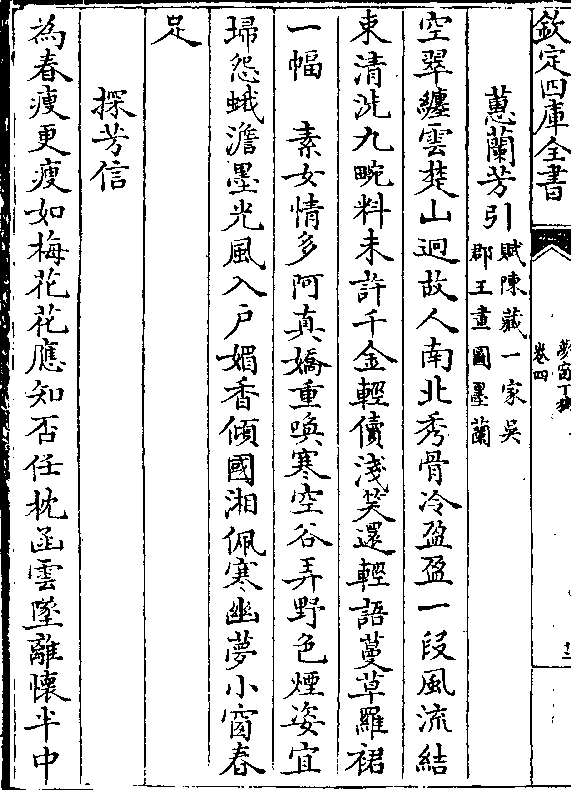 欽定四庫全書
夢窗丁稿
卷四
蕙蘭芳引
賦陳藏一家吳
郡王畫圖墨蘭
空翠纏雲楚山迥故人南北秀骨冷盈盈一段風流結
束清洗九畹料未許千金輕儥淺笑還輕語蔓草羅裙
一幅　素女情多阿真嬌重喚寒空谷弄野色煙姿宜
掃怨蛾澹墨光風入戶媚香傾國湘佩寒幽夢小窗春
足
探芳信
為春瘦更瘦如梅花花應知否任枕函雲墜離懷半中